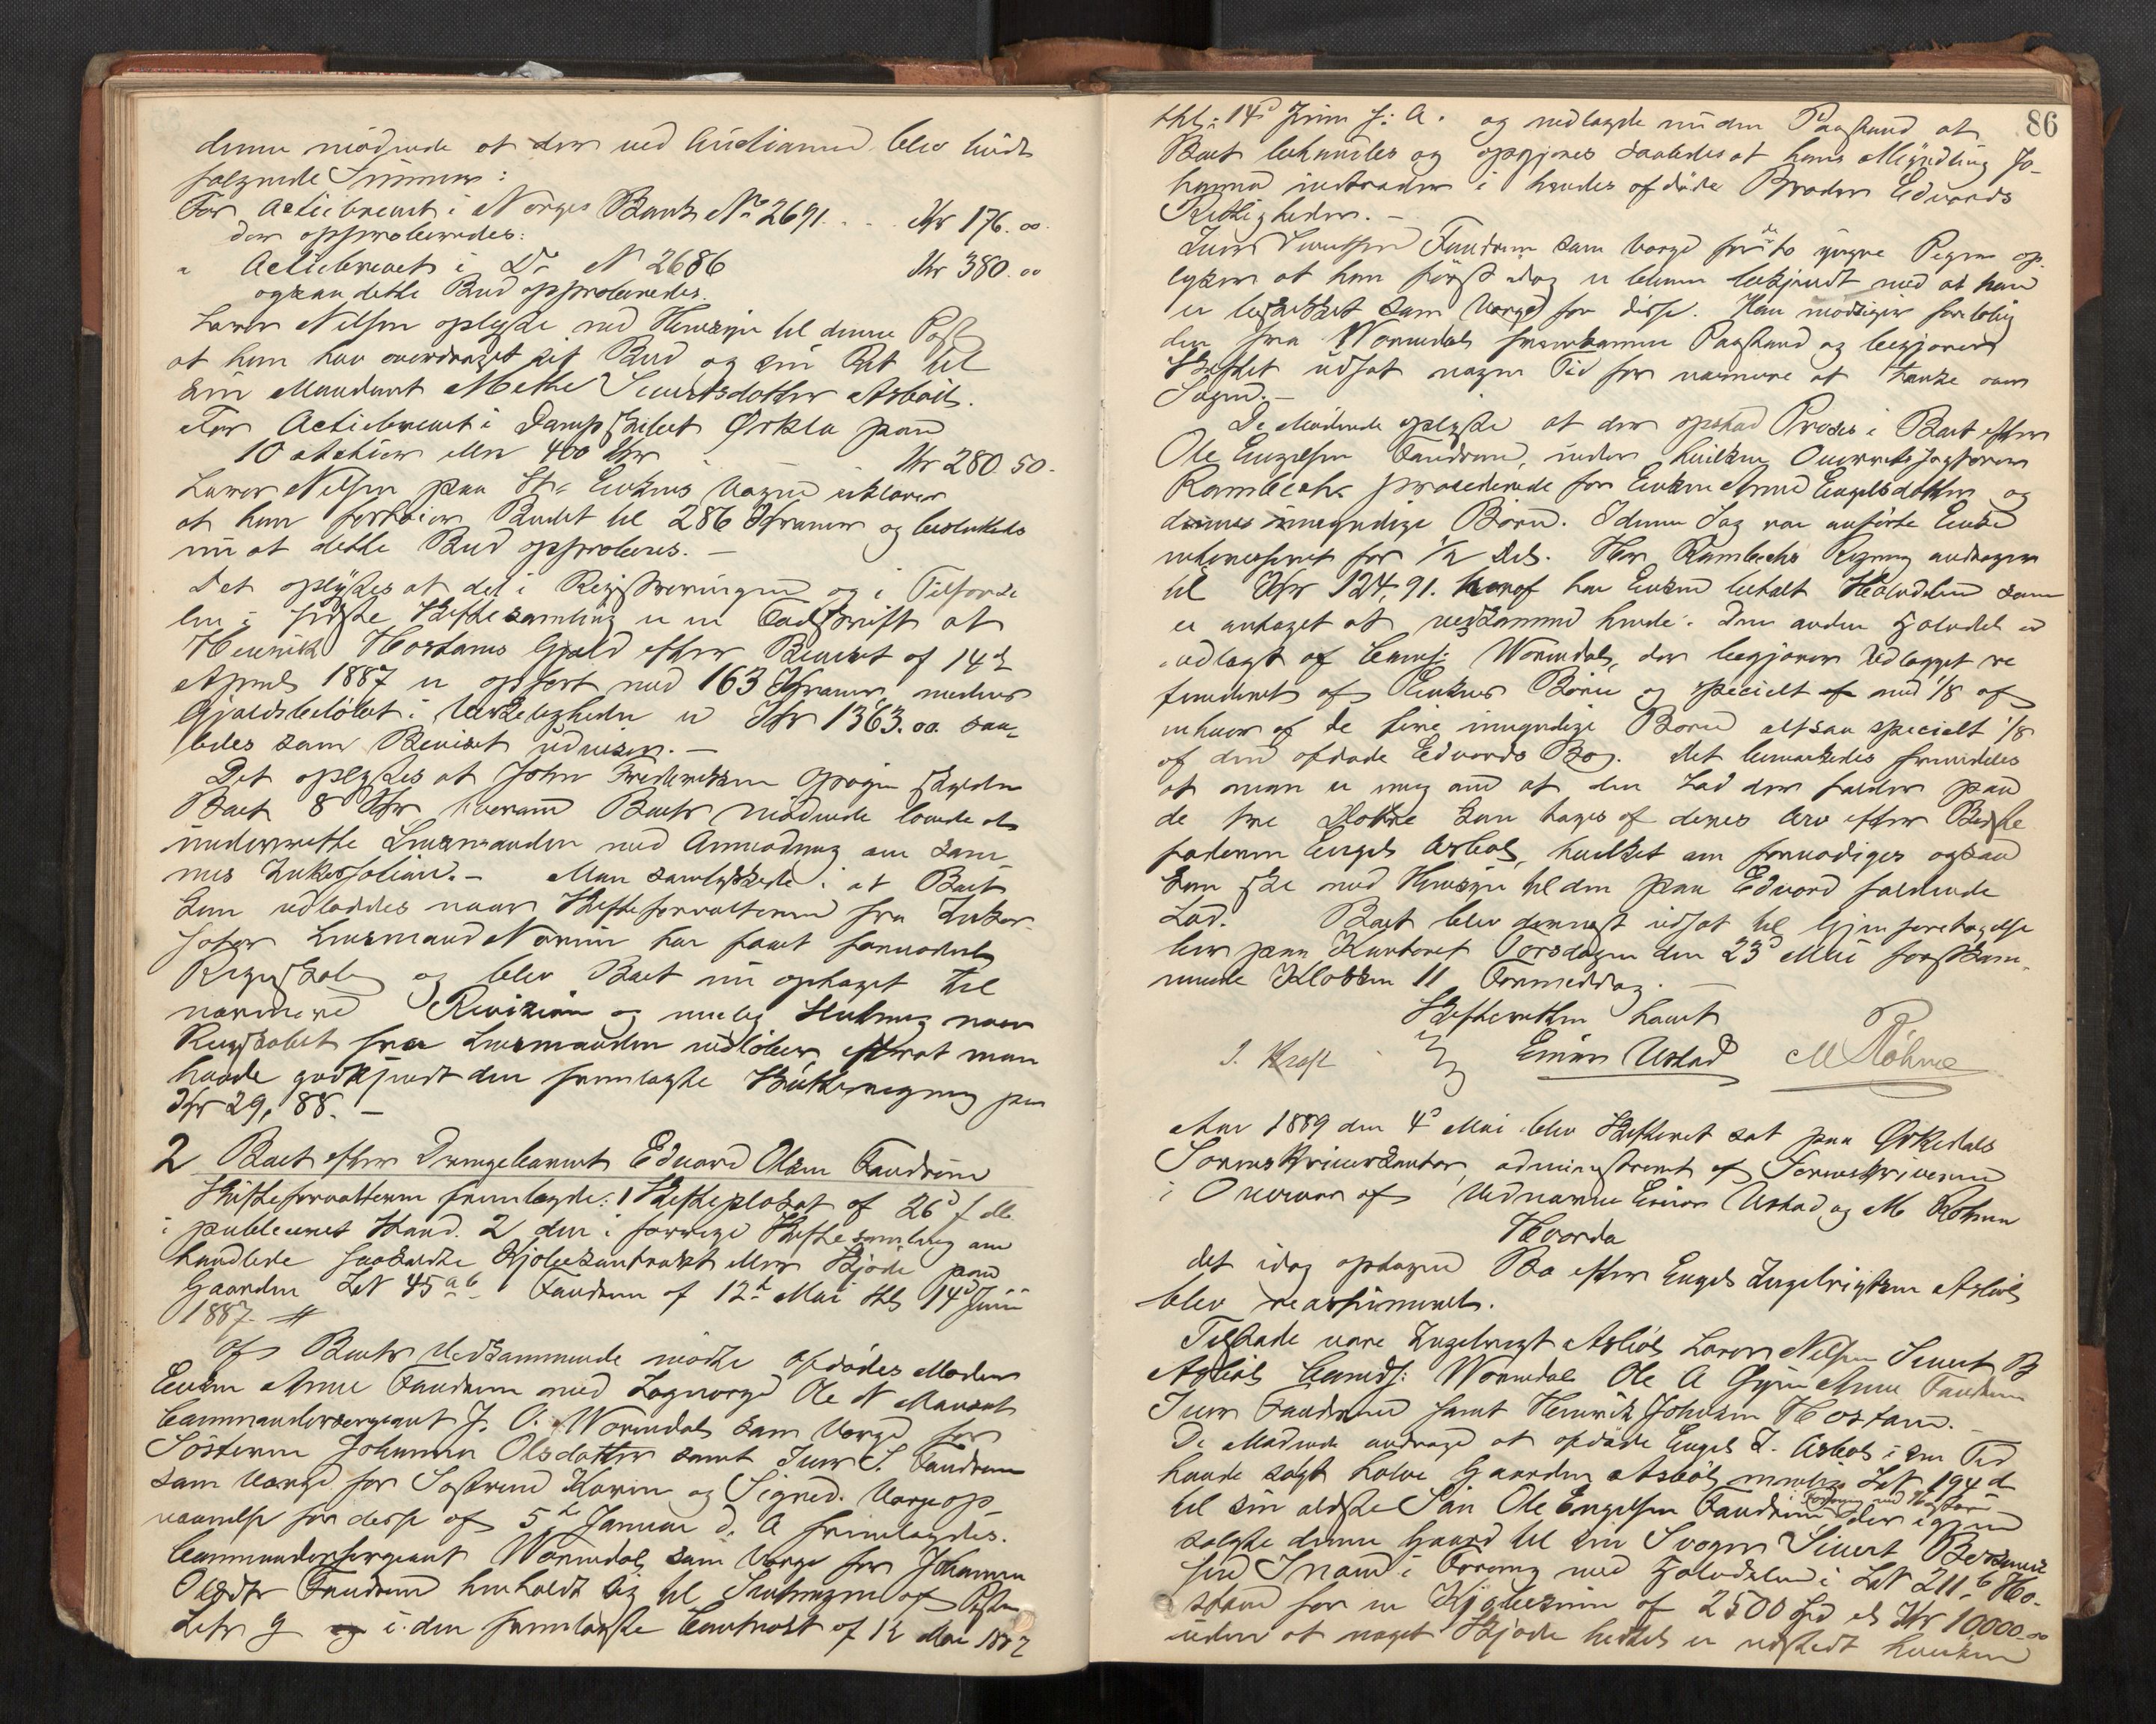 denne mödende at der ved Auctionen blev budt
følgende Summer:
For Actiebrevet i Norges Bank No 2691. . . Kr 176.00
der approberedes.
" Actiebrevet i Do N 2686 Kr 380.00
ogsaa dette Bud approberedes.
Lars Nilsen oplyste med Hensyn til denne Post
at han har overdraget sit Bud og sin Ret til
sin Mandant Methe Sivertsdatter Asbøll.
For Actiebrevet i Dampskibet Ørkla paa
10 Actier eller 400 Kr . . Kr 280.50.
Lars Nilsen paa Enkens Vegne erklærer
at han forhøier Budet til 286 Kroner og besluttedes
nu at dette Bud approberes. –
Det oplystes at det i Registreringen og i Tilførse
len i sidste Skiftesamling er en Feilskrift at
Henrik Hostons Gjæld efter Beviset af 14de
April 1887 er opført med 163 Kroner, medens
Gjældsbeløbet i Virkeligheden er Kr 1363.00 saa-
ledes som Beviset udviser. –
Det oplystes at John Frederiksen skylder
Boet 8 Kr, hvorom Boets mødende lovede at
underrette Lensmanden med Anmodning om sam-
mes Inkassation. – Man samtykkede i at Boet
kan udloddes naar Skifteforvalteren fra Inkas-
sator Lensmand har faaet fornødent
Regnskab og blev Boet nu optaget til
nærmere Revision og mulig Slutning naar
Regnskabet fra Lensmanden indløber, efterat man
havde godkjendt den fremlagte Skifteregning paa
Kr 29,88. –
2 Boet efter Drengebarnet Edvard Olsen Fandrem
Skifteforvalteren fremlagde: 1 Skifteplakat af 26d f. M.
i publiceret Stand. 2 den i forrige Skiftesamling om
handlede saakaldte Kjøbekontrakt eller Skjøde paa
Gaarden LN 45 ab Fandrem af 12te Mai thl 14d Juni
1887. #
Af Boets Vedkommende mødte afdødes Moder
Enken Anne Fandrem med Lagværge Ole N
Commandersergeant J. O. Wormdal som Værge for
Søsteren Johanna Olsdatter samt Iver S. Fandrem
som Værge for Søstrene Karen og Sigrid. Værgeop-
nævnelse for disse af 5te Januar d. A fremlagdes.
Commandersergeant Wormdal som Værge for Johanna
Olsdtr Fandrem henholdt sig til Slutningen af Posten
Litr g i den fremlagte Contract af 12 Mai 1887
86
thl: 14d Juni s: A. og nedlagde nu den Paastand at
Boet behandles og opgjøres saaledes at hans Myndling Jo-
hanna indtræder i hendes afdøde Broder Edvards
Rettigheder. –
Iver Sivertsen Fandrem som Værge for de to yngre Piger op-
lyser at han først idag er bleven bekjendt med at han
er beskikket som Værge for disse. Han modsiger foreløbig
den fra Wormdal fremkomne Paastand og begjærer
Skiftet udsat nogen Tid for nærmere at tænke over
Sagen. –
De Mødende oplyste at der opstod Proces i Boet efter
Ole Engelsen Fandrem, under hvilken Overretssagfører
Rambech procederede for Enken Anne Engelsdatter og
dennes umyndige Børn. I denne Sag var anførte Enke
interesseret for 1/2 Del. Hr Rambechs Regning andrager
til Kr 124,91. Heraf har Enken betalt Halvdelen som
er antaget at vedkomme hende. Den anden Halvdel er
udlagt af Coms: Wormdal, der begjærer Udlægget re
funderet af Enkens Børn og specielt med 1/8 af
enhver af de fire umyndige Børn altsaa specielt 1/8
af den afdøde Edvards Bo. Det bemærkedes fremdeles
at man er enig om at den Lod der falder paa
de tre Døttre kan tages af deres Arv efter Bedste
faderen Engel Asbøl, hvilket om fornødiges ogsaa
kan ske med Hensyn til den paa Edvard faldende
Lod. Boet blev dernæst udsat til Gjenforetagelse
her paa Kontoret Torsdagen den 23d Mai førstkom-
mende Klokken 11 Formiddag. –
Skifteretten hævet
J. Kraft Einar Ustad M Röhme
Aar 1889 den 4d Mai blev Skifteret sat paa Ørkedals
Sorenskriverkontor, administreret af Sorenskriveren
i Overvær af Vidnerne Einar Ustad og M Röhme
Hvorda
det idag optagne Bo efter Engel Ingebrigtsen Asbøl
blev reassumeret.
Tilstede vare Ingebrigt Asbøl, Lars Nilsen Sivert B
Asbøl Comdsj: Wormdal Ole A Anne Fandrem
Iver Fandrem samt Henrik Johnsen Hoston.
De Mødende androge at afdøde Engel I. Asbøl i sin Tid
havde solgt halve Gaarden Asbøl, nemlig LN 194 d
til sin ældste Søn Ole Engelsen Fandrem der igjen
i Forening med Hustru
solgte denne Gaard til sin Svoger Sivert
i Forening med Halvdelen i LN 211 b Ho-
ston for en Kjøbesum af 2500 Spd el Kr 10000.00
uden at noget Skjøde herpaa er udstedt hverken